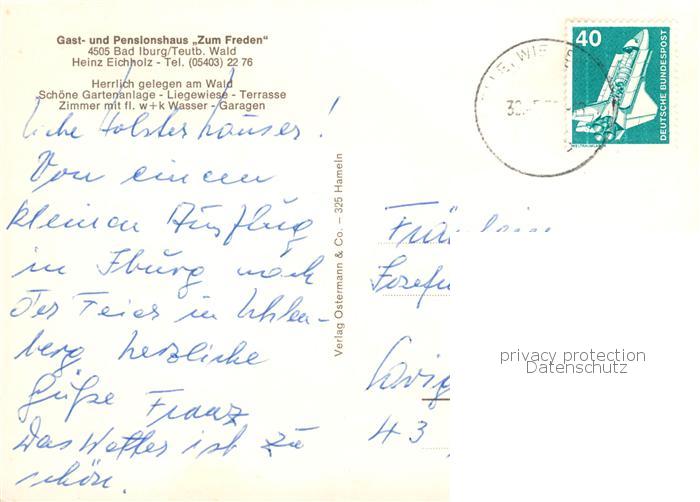 Gast- und Pensionshaus „Zum Freden"
4505 Bad Iburg/Teutb. Wald
Heinz Eichholz - Tel. (05403) 22 76
Herrlich gelegen am Wald
Schöne Gartenanlage - Liegewiese - Terrasse
Zimmer mit fl. w+k Wasser - Garagen
Liebe Holsterhauser!
Von einem
kleinen Ausflug
in Iburg nach
der Feier in
berg herzliche
Grüße Franz
Das Wetter ist zu
schön.
Verlag Ostermann & Co. – 325 Hameln
40
DEUTSCHE BUNDESPOST
Fräulein
43
privacy protection
Datenschutz